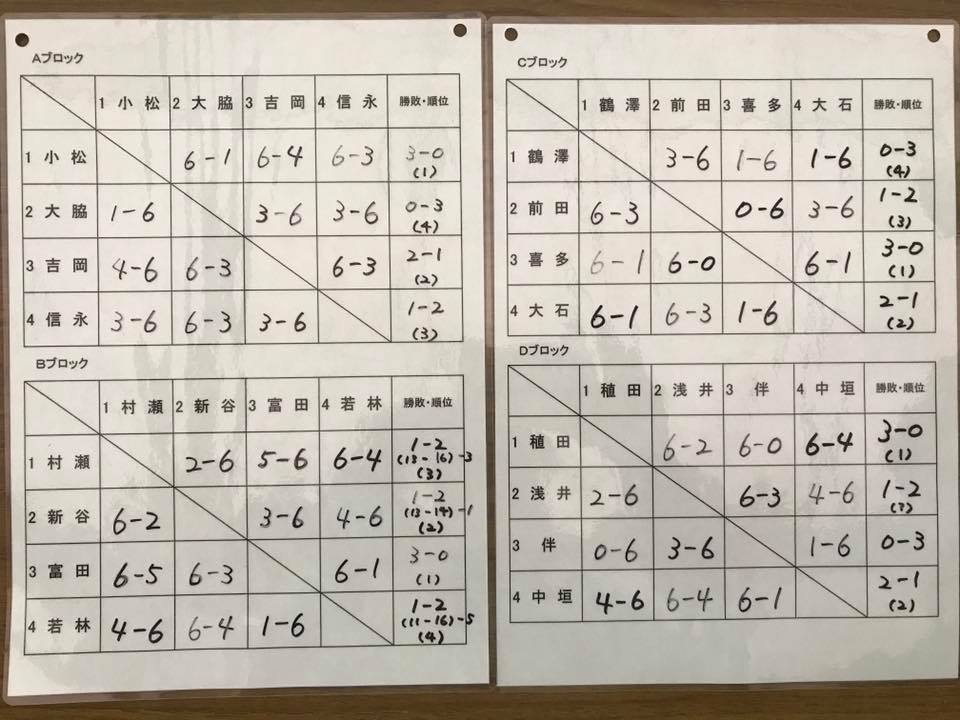 Aブロック
1 小 松 2 大 脇 3 吉 岡 4 信 永 勝敗・順位
1 小 松 6-1 6-4 6-3 3-0 (1)
2 大 脇 1-6 3-6 3-6 0-3 (4)
3 吉 岡 4-6 6-3 6-3 2-1 (2)
4 信 永 3-6 6-3 3-6 1-2 (3)
Bブロック
1 村 瀬 2 新 谷 3 富 田 4 若 林 勝敗・順位
1 村 瀬 2-6 5-6 6-4 1-2 (13-16)-3 (3)
2 新 谷 6-2 3-6 4-6 1-2 (13-14)-1 (2)
3 富 田 6-5 6-3 6-1 3-0 (1)
4 若 林 4-6 6-4 1-6 1-2 (11-16)-5 (4)
Cブロック
1 鶴 澤 2 前 田 3 喜 多 4 大 石 勝敗・順位
1 鶴 澤 3-6 1-6 1-6 0-3 (4)
2 前 田 6-3 0-6 3-6 1-2 (3)
3 喜 多 6-1 6-0 6-1 3-0 (1)
4 大 石 6-1 6-3 1-6 2-1 (2)
Dブロック
1 稙 田 2 浅 井 3 伴 4 中 垣 勝敗・順位
1 稙 田 6-2 6-0 6-4 3-0 (1)
2 浅 井 2-6 6-3 4-6 1-2
3 伴 0-6 3-6 1-6 0-3
4 中 垣 4-6 6-4 6-1 2-1 (2)